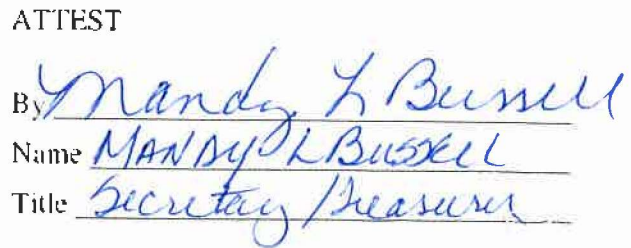 ATTEST
By Mandy L Bussell
Name MANDY L BUSSELL
Title Secretary/Treasurer